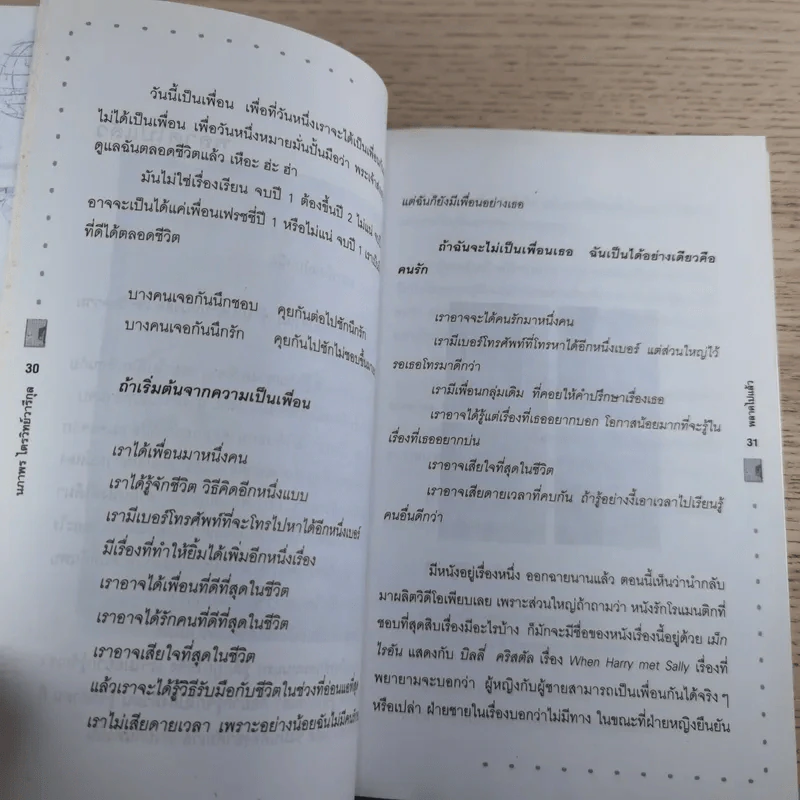 วันนี้เป็นเพื่อน เพื่อที่วันหนึ่งเราจะได้เป็นเพื่อนกัน
ไม่ได้เป็นเพื่อน เพื่อวันหนึ่งหมายมั่นปั้นมือว่า พระเจ้า
ดูแลฉันตลอดชีวิตแล้ว เหอะ ฮ่ะ ฮ่า
มันไม่ใช่เรื่องเรียน จบปี 1 ต้องขึ้นปี 2 ไม่แน่ จบปี
อาจจะเป็นได้แค่เพื่อนเฟรชชี่ปี 1 หรือไม่แน่ จบปี 1
ที่ดีได้ตลอดชีวิต
บางคนเจอกันนึกชอบ คุยกันต่อไปชักนึกรัก
บางคนเจอกันนึกรัก คุยกันไปชักไม่ชอบขึ้นมา
ถ้าเริ่มต้นจากความเป็นเพื่อน
เราได้เพื่อนมาหนึ่งคน
เราได้รู้จักชีวิต วิธีคิดอีกหนึ่งแบบ
เรามีเบอร์โทรศัพท์ที่จะโทรไปหาได้อีกหนึ่งเบอร์
มีเรื่องที่ทำให้ยิ้มได้เพิ่มอีกหนึ่งเรื่อง
เราอาจได้เพื่อนที่ดีที่สุดในชีวิต
เราอาจได้รักคนที่ดีที่สุดในชีวิต
เราอาจเสียใจที่สุดในชีวิต
แล้วเราจะได้รู้วิธีรับมือกับชีวิตในช่วงที่อ่อนแอที่สุด
เราไม่เสียดายเวลา เพราะอย่างน้อยฉันไม่มีคนรัก
30
นภาพร ไตรวิทย์วารีกุล
แต่ฉันก็ยังมีเพื่อนอย่างเธอ
ถ้าฉันจะไม่เป็นเพื่อนเธอ ฉันเป็นได้อย่างเดียวคือ
คนรัก
เราอาจจะได้คนรักมาหนึ่งคน
เรามีเบอร์โทรศัพท์ที่โทรหาได้อีกหนึ่งเบอร์ แต่ส่วนใหญ่ไว้
รอเธอโทรมาดีกว่า
เรามีเพื่อนกลุ่มเดิม ที่คอยให้คำปรึกษาเรื่องเธอ
เราอาจได้รู้แต่เรื่องที่เธออยากบอก โอกาสน้อยมากที่จะรู้ใน
เรื่องที่เธออยากบ่น
เราอาจเสียใจที่สุดในชีวิต
เราอาจเสียดายเวลาที่คบกัน ถ้ารู้อย่างงี้เอาเวลาไปเรียนรู้
คนอื่นดีกว่า
มีหนังอยู่เรื่องหนึ่ง ออกฉายนานแล้ว ตอนนี้เห็นว่านำกลับ
มาผลิตวิดีโอเพียบเลย เพราะส่วนใหญ่ถ้าถามว่า หนังรักโรแมนติกที่
ชอบที่สุดสิบเรื่องมีอะไรบ้าง ก็มักจะมีชื่อของหนังเรื่องนี้อยู่ด้วย เม็ก
ไรอัน แสดงกับ บิลลี่ คริสตัล เรื่อง When Harry met Sally เรื่องที่
พยายามจะบอกว่า ผู้หญิงกับผู้ชายสามารถเป็นเพื่อนกันได้จริง ๆ
หรือเปล่า ฝ่ายชายในเรื่องบอกว่าไม่มีทาง ในขณะที่ฝ่ายหญิงยืนยัน
พลาดไปแล้ว
31